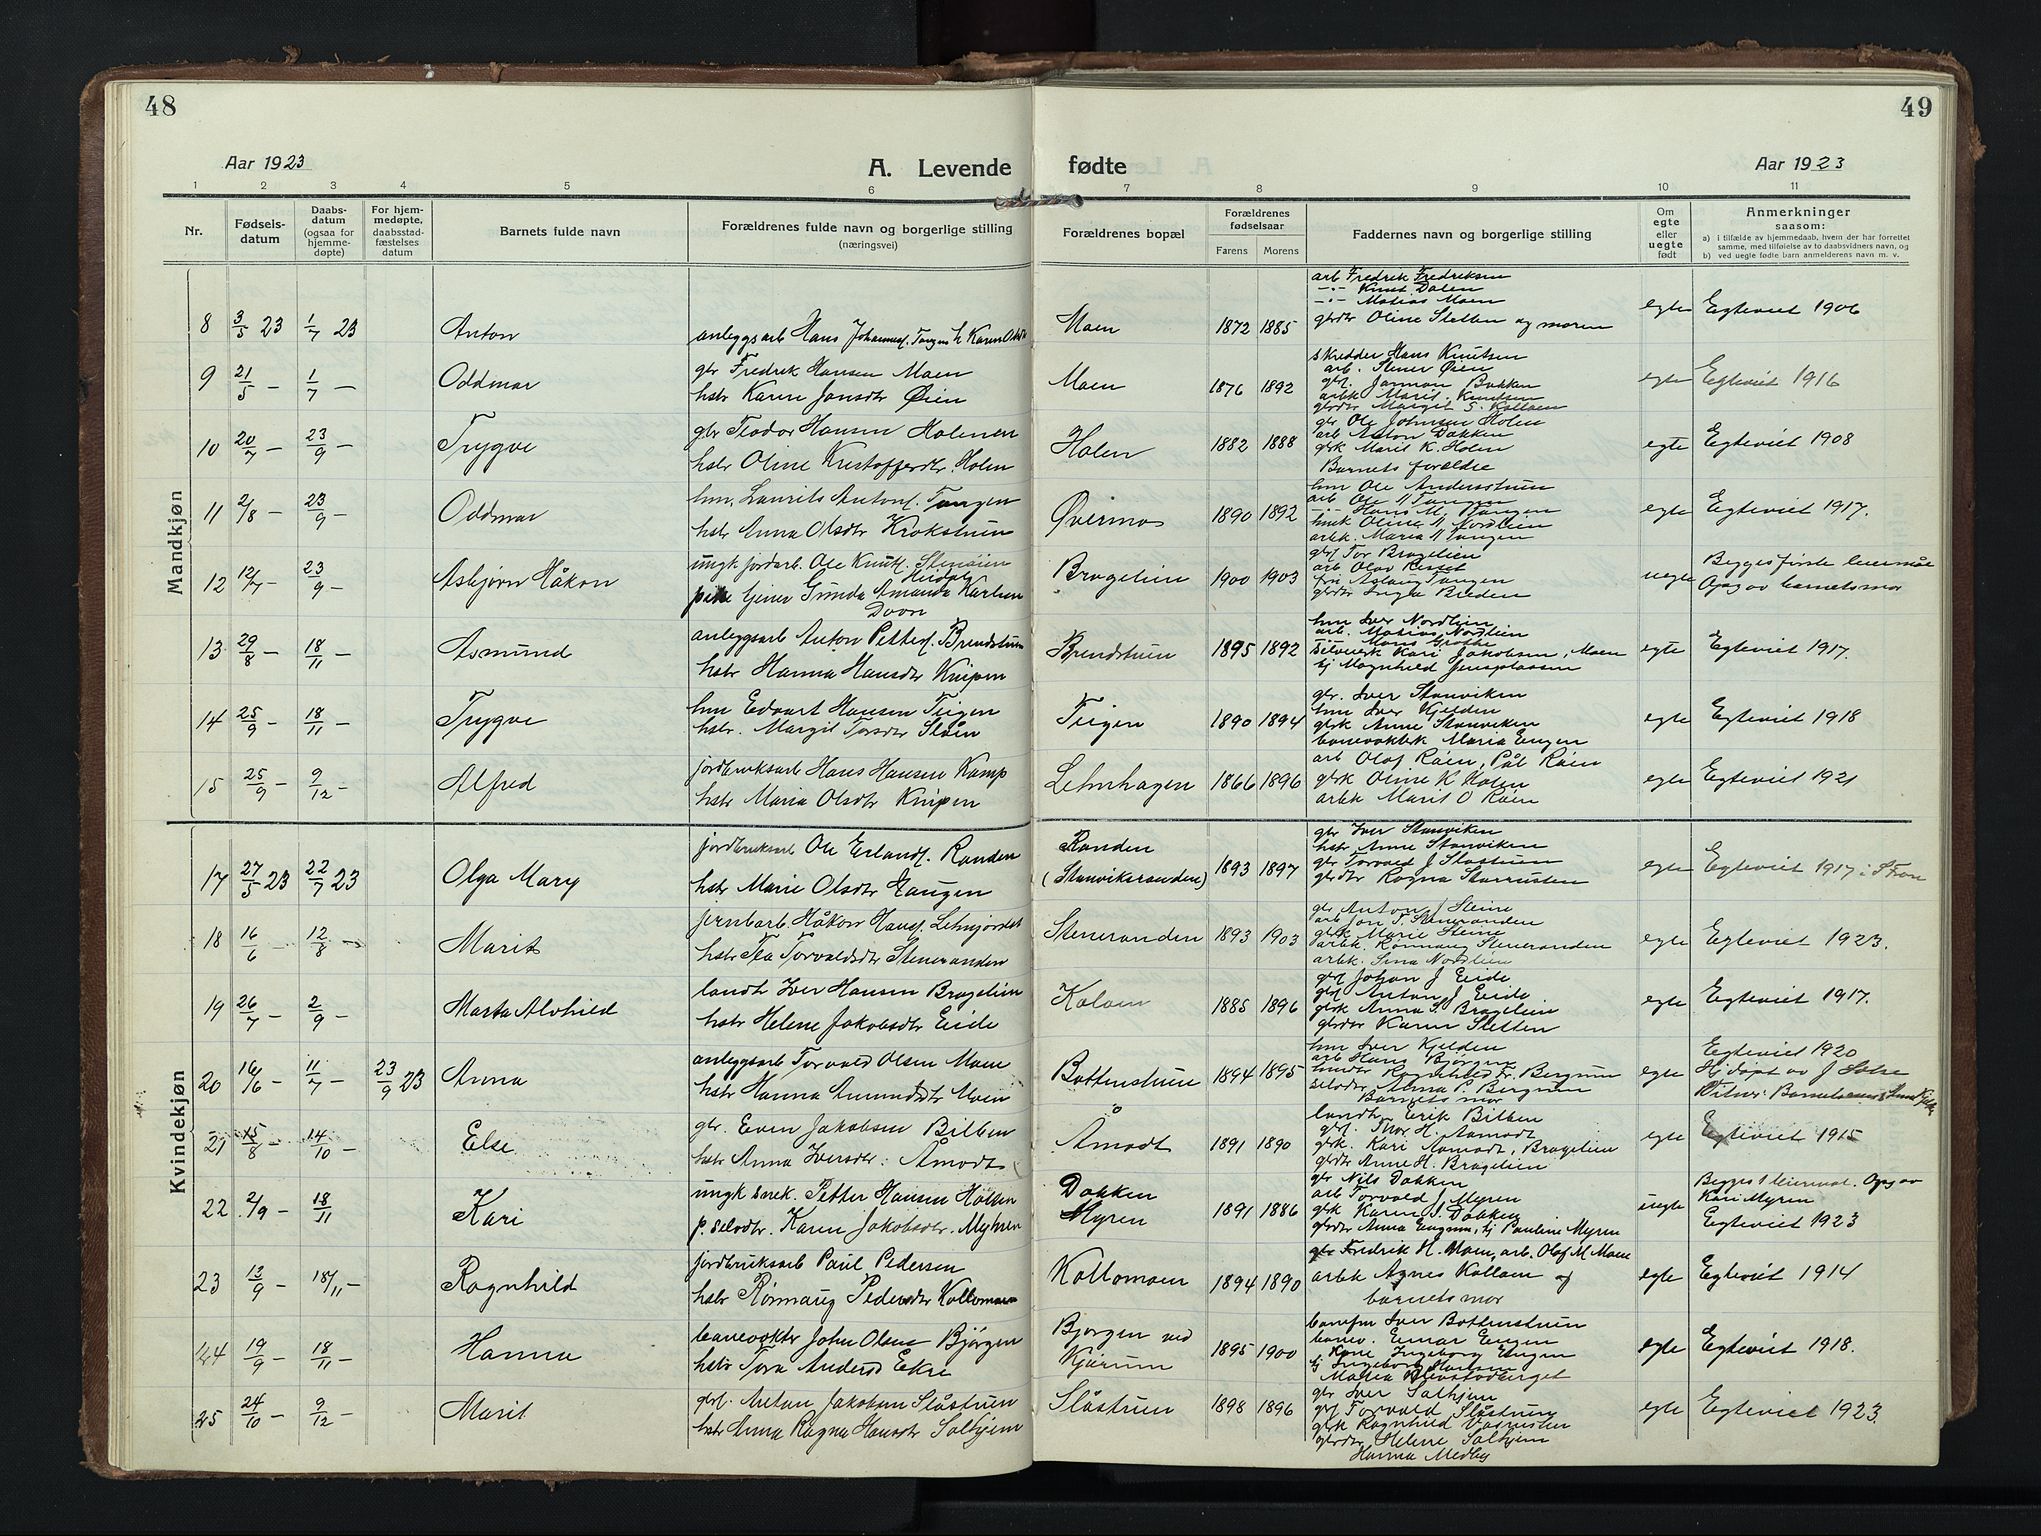 48
49
Aar 1923
A. Levende
fødte
Aar 1923
1 2 3 4 5 6 7 8 9 10 11
Nr.
Fødsels-
datum
Daabs-
datum
(ogsaa for
hjemme-
døpte)
For hjem-
medøpte,
daabsstad-
fæstelses
datum
Barnets fulde navn
Forældrenes fulde navn og borgerlige stilling
(næringsvei)
Forældrenes bopæl
Forældrenes
fødselsaar
Farens Morens
Faddernes navn og borgerlige stilling
Om
egte
eller
uegte
født
Anmerkninger
saasom:
a) i tilfælde av hjemmedaab, hvem der har forrettet
samme, med tilføielse av to daabsvidners navn, og
b) ved uegte fødte barn anmelderens navn m. v.
Mandkjøn
8 3/5 23 1/7 23 Anton
anleggsarb Hans Johannes. Tangen h Karen
Moen 1872 1885
arb Fredrik Fredriksen
-"- Knut Dalen
-"- Matias Moen
gbrdtr Oline Sletten og moren
egte Egteviet 1906
9 21/5 - 1/7 - Oddmar
gbr Fredrik Hansen Moen
hstr Karen Jonsdtr Øien
Moen 1876 1892
skredder Hans Knutsen
arb. Stener Øien
gbs. Jarman Bakken
arbk Marit Knutsen
gbrdtr Margit S. Kolloen
egte Egteviet 1916
10 20/7 - 23/9 - Trygve
gbr Teodor Hansen Holenen
hstr Oline Kristoffersdtr Holen
Holen 1882 1888
gbr Ole Johnsen Holen
arb Anton Dakken
gbrk Marit K. Holen
Barnets forældre
egte Egteviet 1908
11 2/8 - 23/9 - Oddmar
hmn. Laurits Antons. Tangen
hstr Anna Olsdtr Krokstuen
Øvermo 1890 1892
hmn Ole Andersstuen
arb Ole Tangen
-"- Hans M. Tangen
hmk Oline Nordlien
arbk. Maria Tangen
egte Egteviet 1917.
12 12/7 - 23/9 - Asbjørn Håkon
ungk jordarb. Ole Knuts. Stenøien
pike tjener Gunda Amanda Karlsen
Dovre
Bragelien 1900 1903
gbs Tor Bragelien
arb Olav Risset
frk Aslaug Tangen
gbrdtr Inga Breden
uegte Begges første leiermål
Opg av barnets mor
13 29/8 - 18/11 - Asmund
anleggsarb Anton Petters. Brendstuen
hstr Hanna Hansdtr Knipen
Brendstuen 1895 1892
hmn Iver Nordlien
arb. Matias Nordlien
-"- Hans Grothe
selveierk Kari Jakobsen, Moen
tj Magnhild Jensplassen
egte Egteviet 1917.
14 25/9 - 18/11 - Trygve
hmn Edvart Hansen Teigen
hstr. Margit Torsdtr Slåen
Teigen 1890 1894
gbr. Iver Stanviken
hmn Iver Kjelden
gbrk Anne Stanviken
banevokterk Maria Engen
egte Egteviet 1918
15 25/9 - 9/12 - Alfred
jordbruksarb Hans Hansen Kamp
hstr Maria Olsdtr Knipen
Lehnhagen 1866 1896
arb Olaf Råen, Pål Råen
gbrk Oline K Holen
arbk Marit O Råen
egte Egteviet 1921
Kvindekjøn
17 27/5 23 22/7 23 Olga Mary
jordbruksarb Ole Erlands. Randen
hstr Marie Olsdtr Haugen
Randen
(Stanviksranden) 1893 1897
gbr Iver Stanviken
hstr Anne Stanviken
gbr Torvald J Slåstuen
gbrdtr Ragna Starrusten
egte Egteviet 1917 i S Fron
18 16/6 - 12/8 - Marit
jernbarb. Håkon Hans. Lehnjordet
hstr Tea Torvaldsdtr Steneranden
Steneranden 1893 1903
gbr Anton J Steine
arb Jon T. Steneranden
gbrk Marie Steine
arbk. Rønnaug Steneranden
arbk. Sina Nordlien
egte Egteviet 1923.
19 26/7 - 2/9 - Marta Alvhild
landh Iver Hansen Bragelien
hstr Helene Jakobsdtr Eide
Koloen 1885 1896
gbs Johan J Eide
gbs Anton J Eide
gbrk Anna S. Bragelien
gbrdtr Karen Sletten
egte Egteviet 1917.
20 16/6 - 11/7 - 23/9 23 Anna
anleggsarb Torvald Olsen Moen
hstr Hanna Amundsdtr Moen
Bottenstuen 1894 1895
hmn Iver Kjelden
arb Hans Bjørgen
hmdtr Ragnhild Tr. Bergum
selvdtr Anna P. Bergum
Barnets mor
egte Egteviet 1920
Hj døpt av J Sætre
21 15/8 - 14/10 - Else
gbr. Even Jakobsen Bilben
hstr Anna Iversdtr. Åmodt
Åmodt 1891 1890
landh Erik Bilben
gbs Thor H. Aamodt
gbrk. Kari Aamodt, Bragelien
gbrdtr Anne H. Bragelien
egte Egteviet 1915
22 2/9 - 18/11 Kari
ungk snek. Petter Hansen Holsen
p. selvdtr. Karen Jakobsdtr. Myhren
Dakken
Myren 1891 1886
gbr Nils Dakken
arb Torvald J. Myren
gbrk Karen J. Dakken
gbrdtr Anna Engum, tj Pauline Myren
uegte Begges 1 leiermål. Opg av
Kari Myren
Egteviet 1923
23 12/9 - 18/11 - Ragnhild
jordbruksarb Paul Pedersen
hstr Rønnaug Pedersdtr Kollomoen
Kollomoen 1894 1890
gbr Fredrik H. Moen, arb. Olaf M Moen
arbk Agnes Kolloen og
barnets mor
egte Egteviet 1914
24 19/9 - 18/11 - Hanna
banevokter John Olsen Bjørgen
hstr Tora Andersd Ekre
Bjørgen ved
Kjørum 1895 1900
banefm Iver Bottenstuen
banev. Einar Engen
Kone Ingeborg Engen
tj Ingeborg Hansen
egte Egteviet 1918.
25 24/10 - 9/12 - Marit
gbs. Anton Jakobsen Slåstuen
hstr Anna Ragna Hansdtr Solhjem
Slåstuen 1898 1896
gbr Iver Solhjem
gbs Torvald Slåstuen
gbrk Ragnhild
gbrdtr Helene Solhjem
Hanna Medby
egte Egteviet 1923